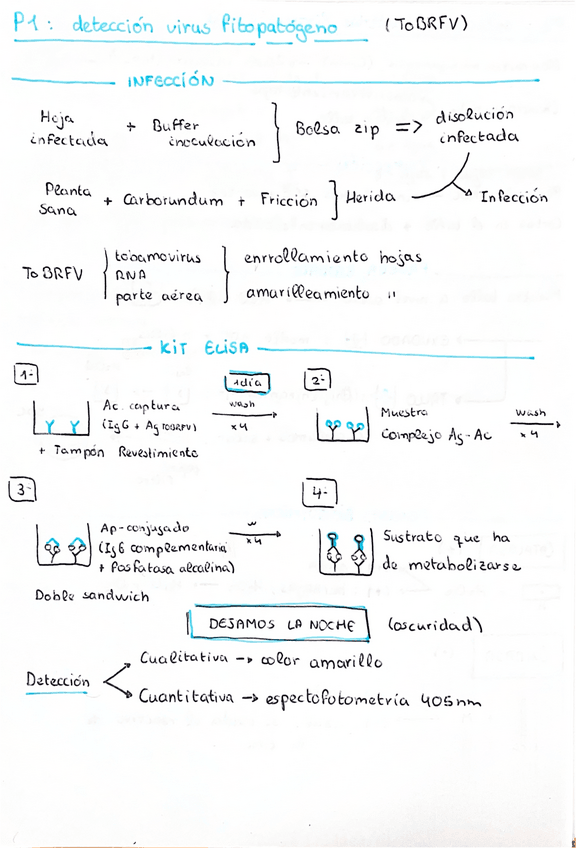 P1: detección virus fitopatógeno (ToBRFV)
INFECCIÓN
Hoja infectada + Buffer inoculación } Bolsa zip => disolución infectada
Planta sana + Carborundum + Fricción } Herida Infección
ToBRFV { tobamovirus
RNA
parte aérea } enrrollamiento hojas
amarilleamiento "
KIT ELISA
1-
Ac. captura
(IgG + Ag ToBRFV)
+ Tampón Revestimiento
1 día
wash
x4
2-
Muestra
Complejo Ag-Ac
wash
x4
3-
Ap-conjugado
(IgG complementaria
+ fosfatasa alcalina)
w
x4
Doble sandwich
4-
Sustrato que ha
de metabolizarse
DEJAMOS LA NOCHE (oscuridad)
Detección
Cualitativa → color amarillo
Cuantitativa → espectofotometría 405nm